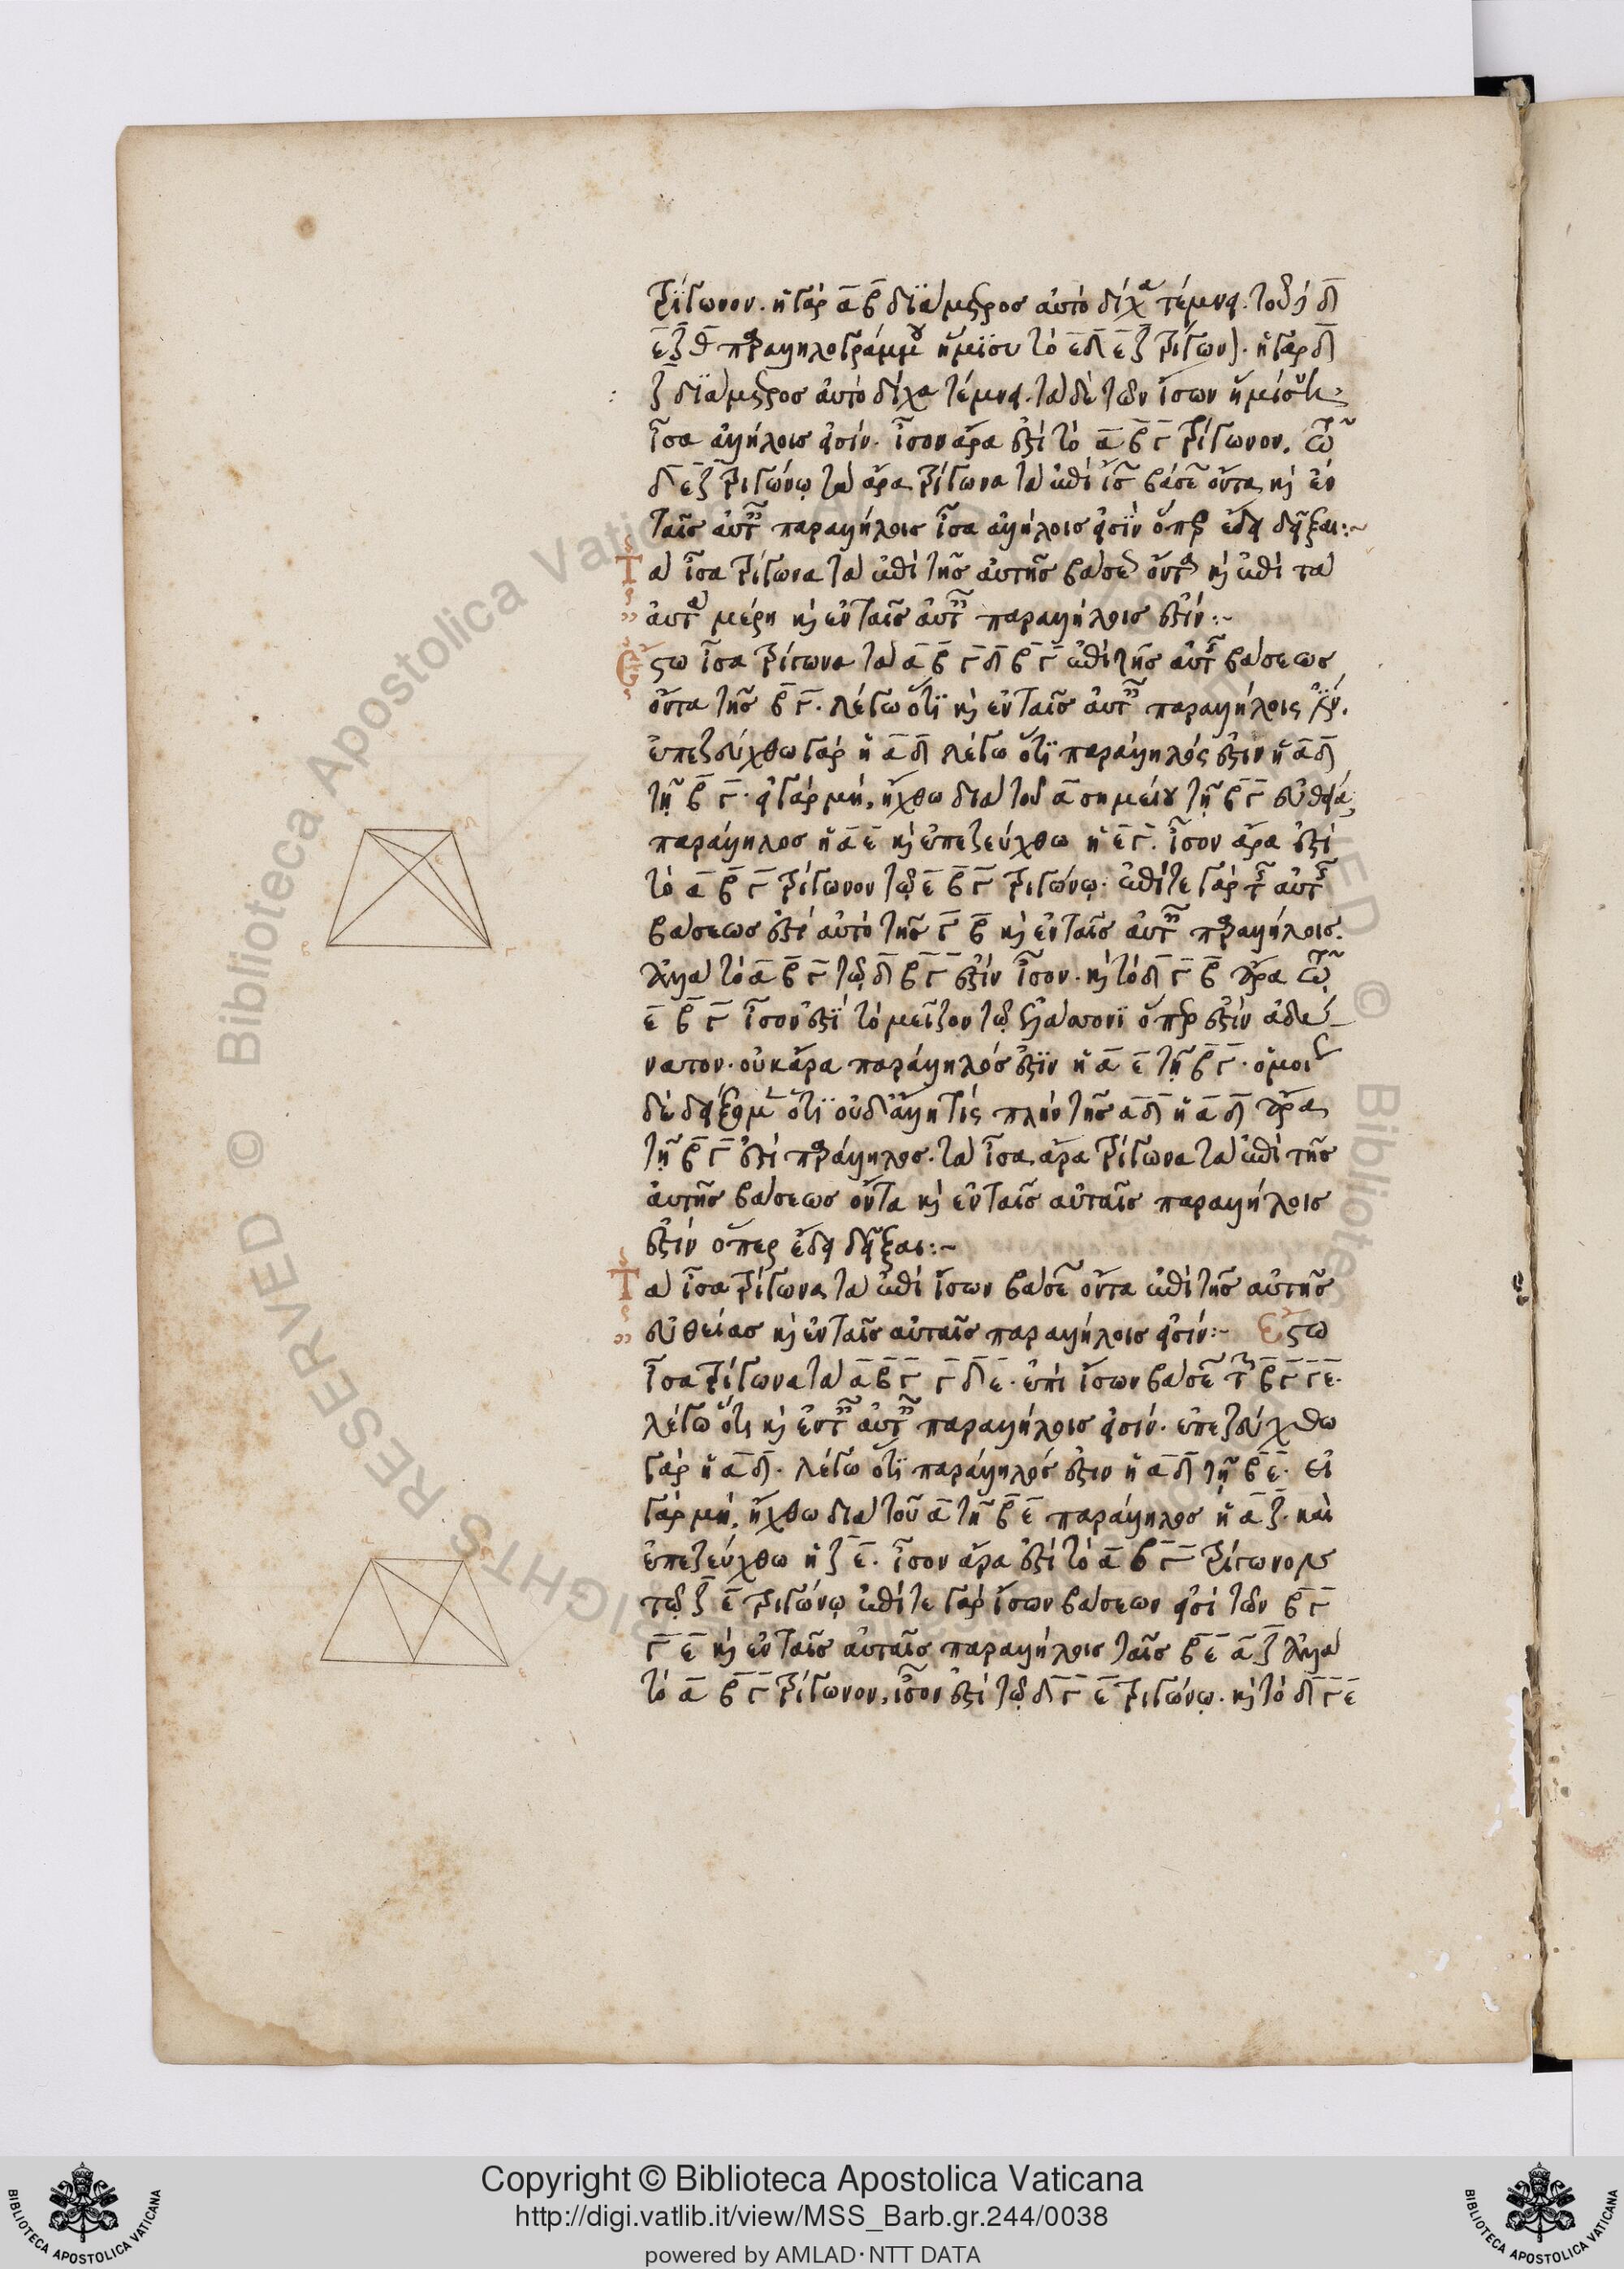 τρίγωνον. ἡ γὰρ α β διάμετρος αὐτὸ δίχα τέμνει. τοῦ δὲ δ
ε ζ θ παραλληλογράμμου ἥμισυ τὸ ε δ ε ζ τρίγωνον. ἡ γὰρ δ
ζ διάμετρος αὐτὸ δίχα τέμνει. τὰ δὲ τῶν ἴσων ἡμίση
ἴσα ἀλλήλοις εἰσίν. ἴσον ἄρα ἐστὶ τὸ α β γ τρίγωνον. τῷ
δ ε ζ τριγώνῳ τὰ ἄρα τρίγωνα τὰ ἐπὶ ἴσων βάσεων ὄντα καὶ ἐν
ταῖς αὐταῖς παραλλήλοις ἴσα ἀλλήλοις εἰσὶν ὅπερ ἔδει δεῖξαι:~
Τὰ ἴσα τρίγωνα τὰ ἐπὶ τῆς αὐτῆς βάσεως ὄντα καὶ ἐπὶ τὰ
αὐτὰ μέρη καὶ ἐν ταῖς αὐταῖς παραλλήλοις ἐστίν:~
Ἔστω ἴσα τρίγωνα τὰ α β γ δ β γ ἐπὶ τῆς αὐτῆς βάσεως
ὄντα τῆς β γ. λέγω ὅτι καὶ ἐν ταῖς αὐταῖς παραλλήλοις ἐστίν.
ἐπεζεύχθω γὰρ ἡ α δ λέγω ὅτι παράλληλός ἐστιν ἡ α δ
τῇ β γ. εἰ γὰρ μή, ἤχθω διὰ τοῦ α σημείου τῇ β γ εὐθείᾳ
παράλληλος ἡ α ε καὶ ἐπεζεύχθω ἡ ε γ. ἴσον ἄρα ἐστὶ
τὸ α β γ τρίγωνον τῷ ε β γ τριγώνῳ. ἐπί τε γὰρ τῆς αὐτῆς
βάσεως ἐστὶ αὐτὸ τῆς γ β καὶ ἐν ταῖς αὐταῖς παραλλήλοις.
ἀλλὰ τὸ α β γ τῷ δ β γ ἐστὶν ἴσον. καὶ τὸ δ γ β ἄρα τῷ
ε β γ ἴσον ἐστὶ τὸ μεῖζον τῷ ἐλάσσονι ὅπερ ἐστὶν ἀδύ
νατον. οὐκ ἄρα παράλληλός ἐστιν ἡ α ε τῇ β γ. ὁμοίως
δὲ δείξομεν ὅτι οὐδ' ἄλλη τίς πλὴν τῆς α δ ἡ α δ ἄρα
τῇ β γ ἐστὶ παράλληλος. τὰ ἴσα ἄρα τρίγωνα τὰ ἐπὶ τῆς
αὐτῆς βάσεως ὄντα καὶ ἐν ταῖς αὐταῖς παραλλήλοις
ἐστὶν ὅπερ ἔδει δεῖξαι:~
Τὰ ἴσα τρίγωνα τὰ ἐπὶ ἴσων βάσεων ὄντα ἐπὶ τῆς αὐτῆς
εὐθείας καὶ ἐν ταῖς αὐταῖς παραλλήλοις εἰσίν:~ Ἔστω
ἴσα τρίγωνα τὰ α β γ γ δ ε. ἐπὶ ἴσων βάσεων τῶν β γ γ ε.
λέγω ὅτι καὶ ἐν ταῖς αὐταῖς παραλλήλοις εἰσίν. ἐπεζεύχθω
γὰρ ἡ α δ. λέγω ὅτι παράλληλός ἐστιν ἡ α δ τῇ β ε. εἰ
γὰρ μή, ἤχθω διὰ τοῦ α τῇ β ε παράλληλος ἡ α ζ. καὶ
ἐπεζεύχθω ἡ ζ ε. ἴσον ἄρα ἐστὶ τὸ α β γ τρίγωνον
τῷ ζ ε τριγώνῳ ἐπί τε γὰρ ἴσων βάσεων εἰσὶ τῶν β γ
γ ε καὶ ἐν ταῖς αὐταῖς παραλλήλοις ταῖς β ε α ζ ἀλλὰ
τὸ α β γ τρίγωνον, ἴσον ἐστὶ τῷ δ γ ε τριγώνῳ. καὶ τὸ δ γ ε
Copyright © Biblioteca Apostolica Vaticana
http://digi.vatlib.it/view/MSS_Barb.gr.244/0038
powered by AMLAD·NTT DATA
BIBLIOTECA APOSTOLICA VATICANA
BIBLIOTECA APOSTOLICA VATICANA